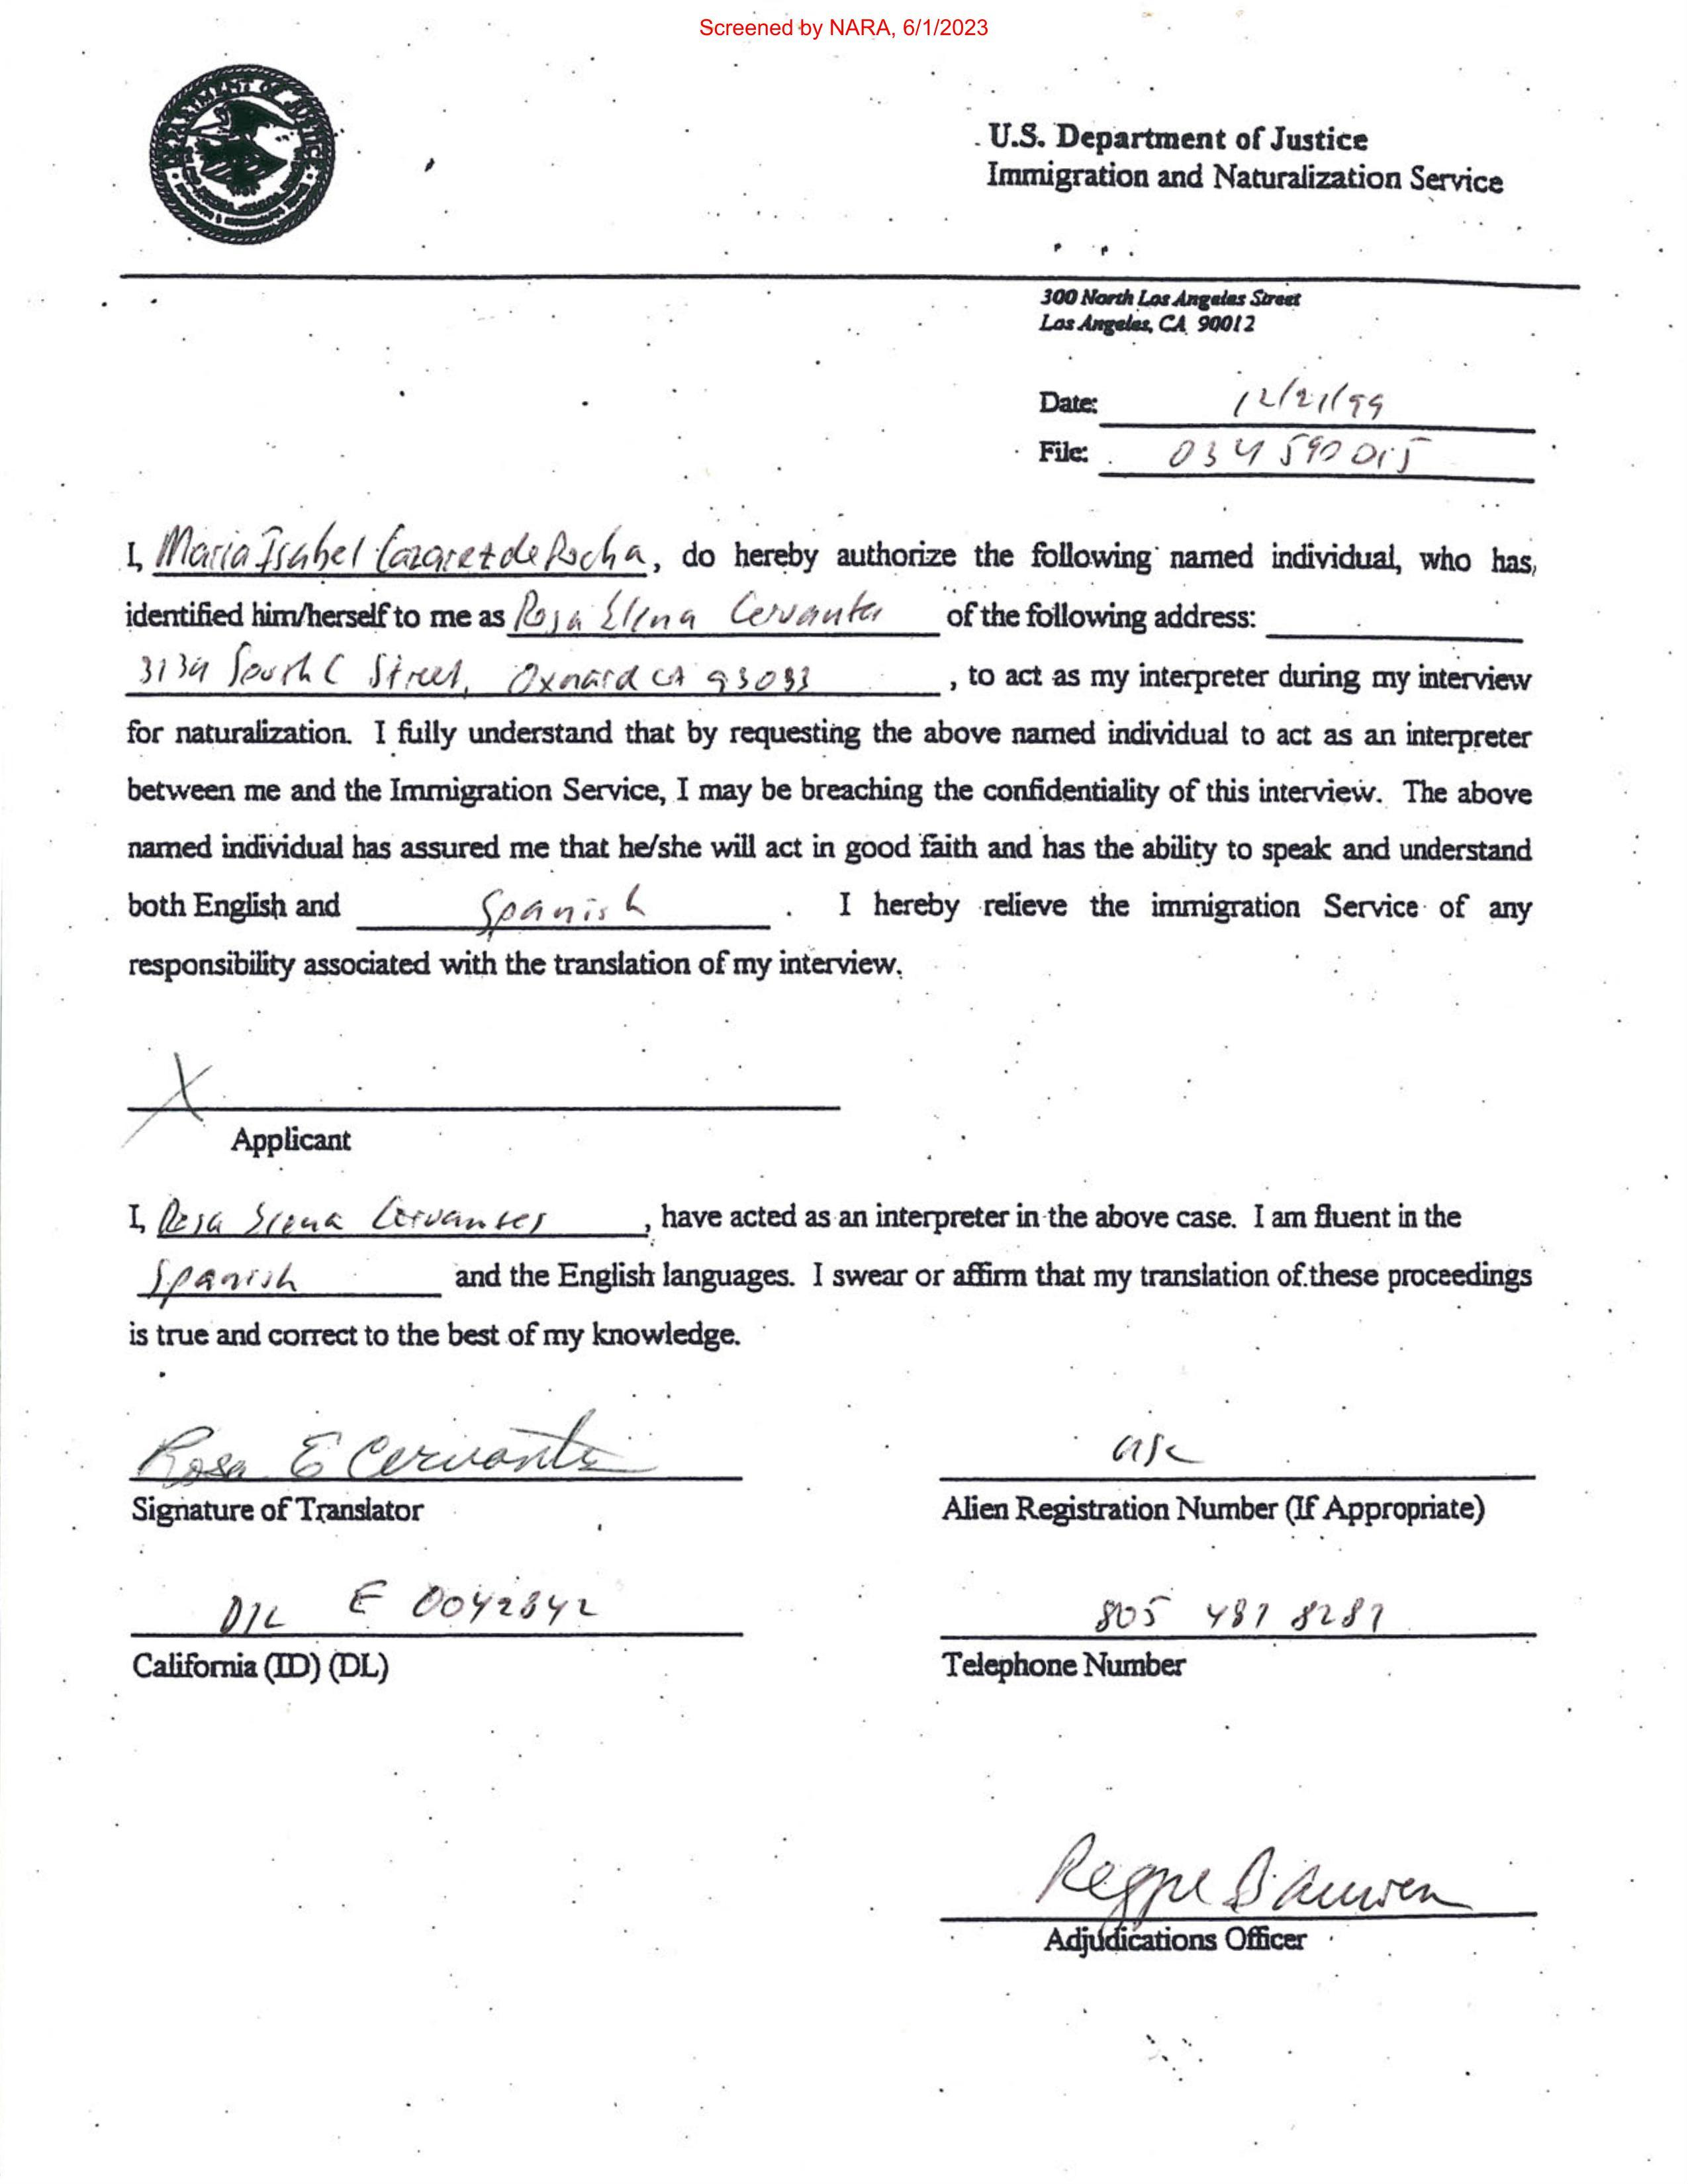 Screened by NARA, 6/1/2023
U.S. Department of Justice
Immigration and Naturalization Service
300 North Los Angeles Street
Los Angeles, CA 90012
Date: 12/21/99
File: 034 590 015
I, Maria Isabel Cazarez de Rocha, do hereby authorize the following named individual, who has,
identified him/herself to me as Rosa Elena Cervantes of the following address:
3134 South C Street, Oxnard CA 93033, to act as my interpreter during my interview
for naturalization. I fully understand that by requesting the above named individual to act as an interpreter
between me and the Immigration Service, I may be breaching the confidentiality of this interview. The above
named individual has assured me that he/she will act in good faith and has the ability to speak and understand
both English and Spanish. I hereby relieve the immigration Service of any
responsibility associated with the translation of my interview.
X
Applicant
I, Rosa Elena Cervantes, have acted as an interpreter in the above case. I am fluent in the
Spanish and the English languages. I swear or affirm that my translation of these proceedings
is true and correct to the best of my knowledge.
Rosa E Cervantes
Signature of Translator
Alien Registration Number (If Appropriate)
E 0042842
California (ID) (DL)
805 487 8287
Telephone Number
Adjudications Officer